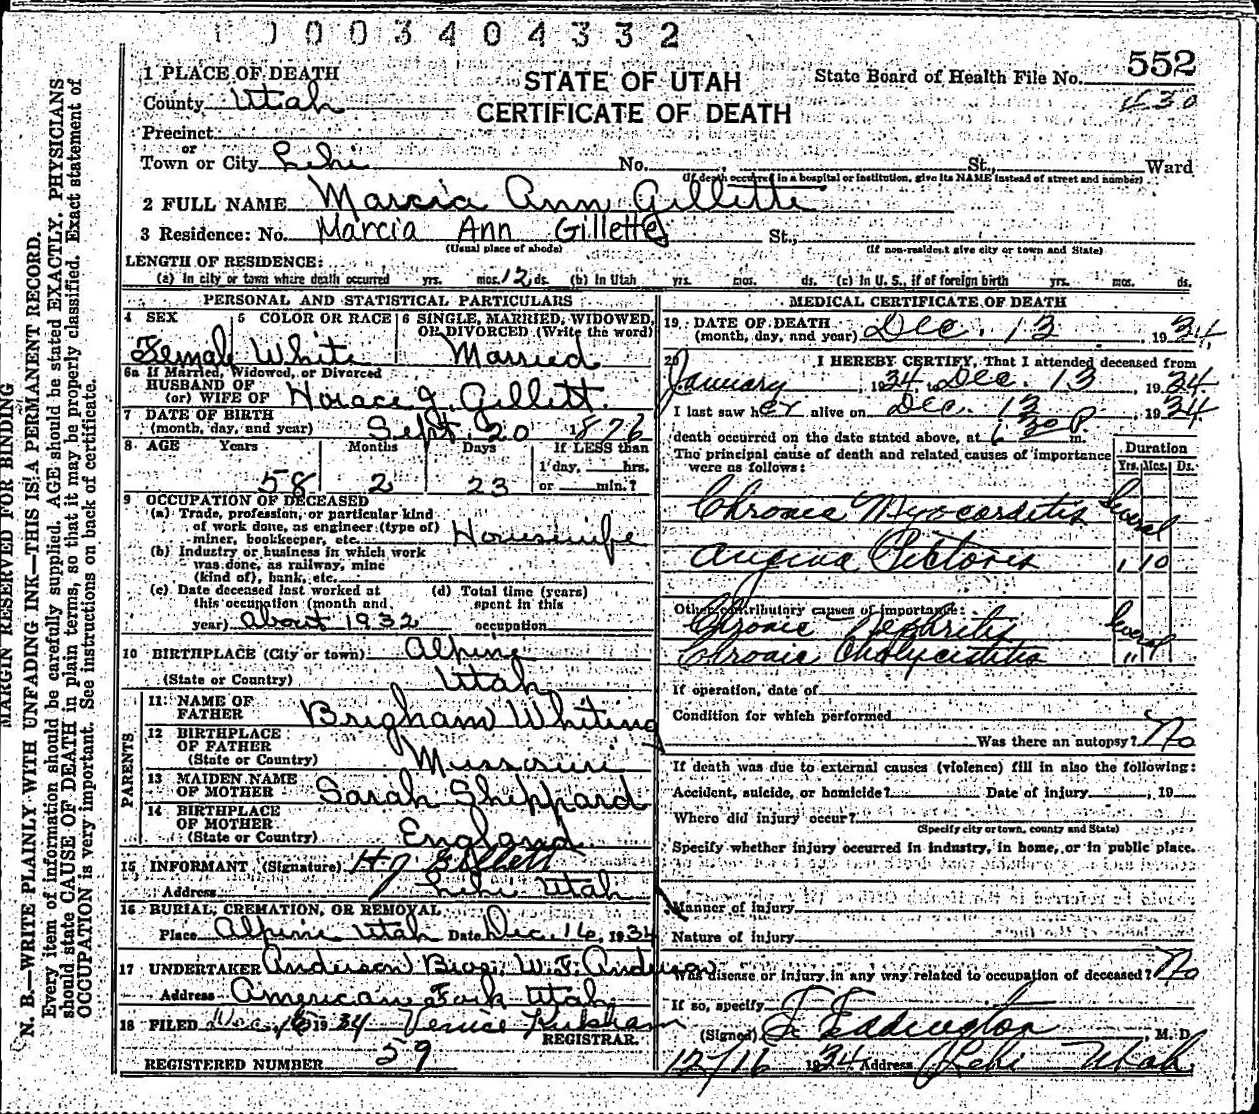 0003404332
552
1 PLACE OF DEATH
STATE OF UTAH
State Board of Health File No.
County Utah
430
CERTIFICATE OF DEATH
Precinct
or
Town or City Lehi No. St., Ward
(If death occurred in a hospital or institution, give its NAME instead of street and number)
2 FULL NAME Marcia Ann Gillette
3 Residence: No. Marcia Ann Gillette St.,
(Usual place of abode) (If non-resident give city or town and State)
LENGTH OF RESIDENCE:
(a) In city or town where death occurred yrs. mos. 12 ds. (b) In Utah yrs. mos. ds. (c) In U. S., if of foreign birth yrs. mos. ds.
PERSONAL AND STATISTICAL PARTICULARS
4 SEX 5 COLOR OR RACE 6 SINGLE, MARRIED, WIDOWED, OR DIVORCED (Write the word)
Female White Married
6a If Married, Widowed, or Divorced
HUSBAND OF
(or) WIFE OF Horace J. Gillett.
7 DATE OF BIRTH
(month, day, and year) Sept 20 1876
8 AGE Years Months Days If LESS than
1 day, hrs.
58 2 23 or min.?
9 OCCUPATION OF DECEASED
(a) Trade, profession, or particular kind
of work done, as engineer (type of)
miner, bookkeeper, etc. Housewife
(b) Industry or business in which work
was done, as railway, mine
(kind of), bank, etc.
(c) Date deceased last worked at (d) Total time (years)
this occupation (month and spent in this
year) about 1932 occupation
10 BIRTHPLACE (City or town) Alpine
(State or Country) Utah
PARENTS
11 NAME OF
FATHER Brigham Whiting
12 BIRTHPLACE
OF FATHER
(State or Country) Missouri
13 MAIDEN NAME
OF MOTHER Sarah Sheppard
14 BIRTHPLACE
OF MOTHER
(State or Country) England
15 INFORMANT (Signature) H J Gillett
Address Lehi Utah
16 BURIAL, CREMATION, OR REMOVAL
Place Alpine Utah Date Dec. 16, 1934
17 UNDERTAKER Anderson Bros. W.F. Anderson
Address American Fork Utah
18 FILED Dec 16 1934 Venice Kirkham
REGISTRAR.
REGISTERED NUMBER 59
MEDICAL CERTIFICATE OF DEATH
19 DATE OF DEATH
(month, day, and year) Dec. 13, 1934
20 I HEREBY CERTIFY, That I attended deceased from
January, 1934 to Dec. 13, 1934
I last saw her alive on Dec. 13, 1934
death occurred on the date stated above, at 6 30 P. m.
The principal cause of death and related causes of importance
were as follows:
Duration
Yrs. Mos. Ds.
Chronic Myocarditis Several
Angina Pectoris 1 10
Other contributory causes of importance:
Chronic Nephritis Several
Chronic Cholycistitis "
If operation, date of
Condition for which performed
Was there an autopsy? No
If death was due to external causes (violence) fill in also the following:
Accident, suicide, or homicide? Date of injury , 19
Where did injury occur?
(Specify city or town, county and State)
Specify whether injury occurred in industry, in home, or in public place.
Manner of injury
Nature of injury
Was disease or injury in any way related to occupation of deceased? No
If so, specify
(Signed) Eddington M. D.
12/16 1934 Address Lehi Utah
MARGIN RESERVED FOR BINDING
N. B.—WRITE PLAINLY WITH UNFADING INK—THIS IS A PERMANENT RECORD.
Every item of information should be carefully supplied. AGE should be stated EXACTLY. PHYSICIANS
should state CAUSE OF DEATH in plain terms, so that it may be properly classified. Exact statement of
OCCUPATION is very important. See instructions on back of certificate.